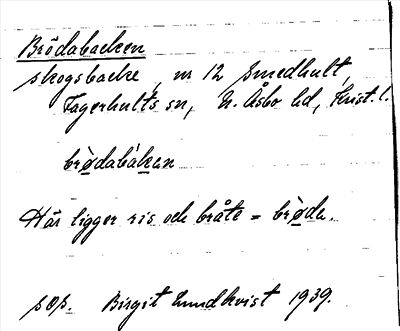 Brödabacken
skogsbacke, nr 12 Smedhult,
Fagerhults sn, N. Åsbo hd, Krist. l.
brø̀dabákan
Här ligger ris och bråte = brø̀da.
sos. Birgit Lundkvist 1939.